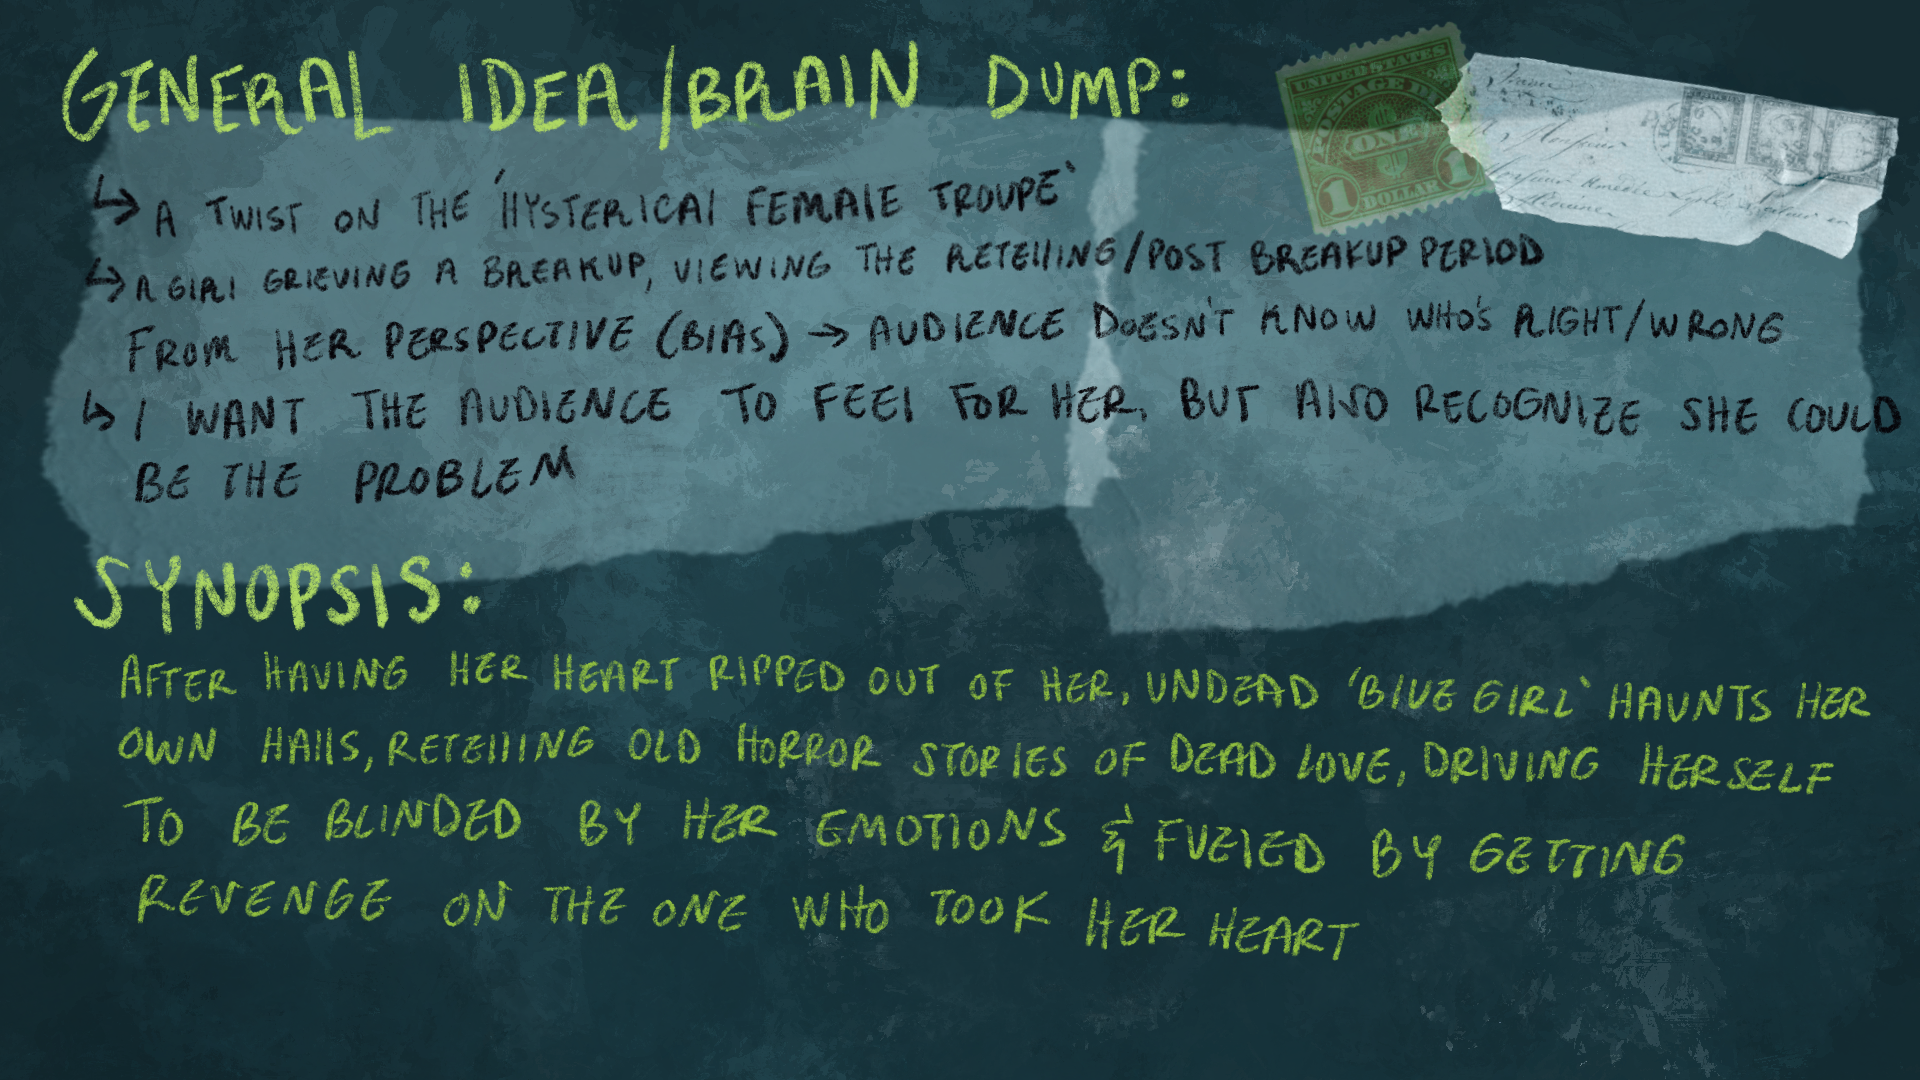 GENERAL IDEA/BRAIN DUMP:
UNITED STATES
POSTAGE
ONE
1 1
DOLLAR
↳ A TWIST ON THE 'HYSTERICAL FEMALE TROUPE'
↳ A GIRL GRIEVING A BREAKUP, VIEWING THE RETELLING/POST BREAKUP PERIOD
FROM HER PERSPECTIVE (BIAS) → AUDIENCE DOESN'T KNOW WHO'S RIGHT/WRONG
↳ I WANT THE AUDIENCE TO FEEL FOR HER, BUT ALSO RECOGNIZE SHE COULD
BE THE PROBLEM
SYNOPSIS:
AFTER HAVING HER HEART RIPPED OUT OF HER, UNDEAD 'BLUE GIRL' HAUNTS HER
OWN HALLS, RETELLING OLD HORROR STORIES OF DEAD LOVE, DRIVING HERSELF
TO BE BLINDED BY HER EMOTIONS & FUELED BY GETTING
REVENGE ON THE ONE WHO TOOK HER HEART